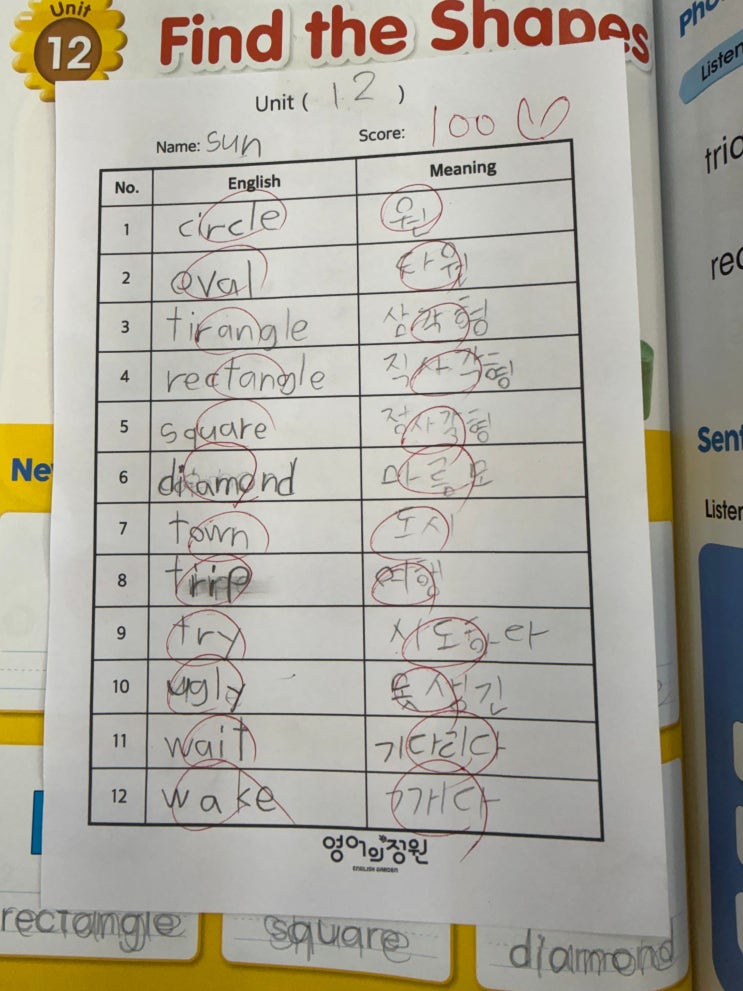 Unit
12
Find the Shapes
Unit ( 12 )
Name: sun
Score: 100
No. English Meaning
1 circle 원
2 oval 타원
3 tirangle 삼각형
4 rectangle 직사각형
5 square 정사각형
6 diamond 마름모
7 town 도시
8 trip 여행
9 try 시도하다
10 ugly 못생긴
11 wait 기다리다
12 wake 깨다
영어의정원
ENGLISH GARDEN
rectangle square diamond
Ne
Pho
Listen
tric
rec
Sent
Listen